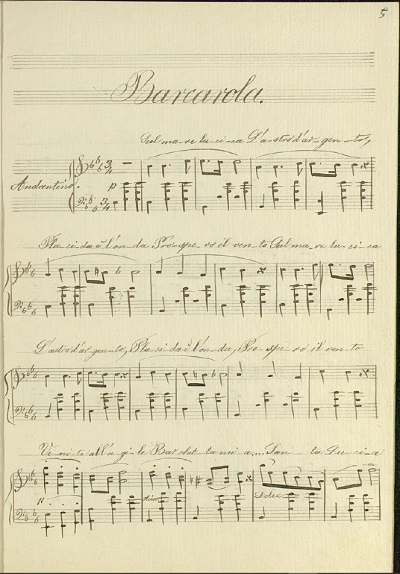 5
Barcarola.
Sul ma-re lu-ci-ca L'a-stro d'ar-gen-to,
Andantino. p
Pla-ci-da è l'on-da Pro-spe-ro il ven-to Sul ma-re lu-ci-ca
L'astro d'ar-gen-to, Pla-ci-da è l'on-da, Pro-spe-ro il ven-to
Ve-ni-te all'a-gi-le Bar-chet-ta mi-a... San-ta Lu-ci-a
dolce